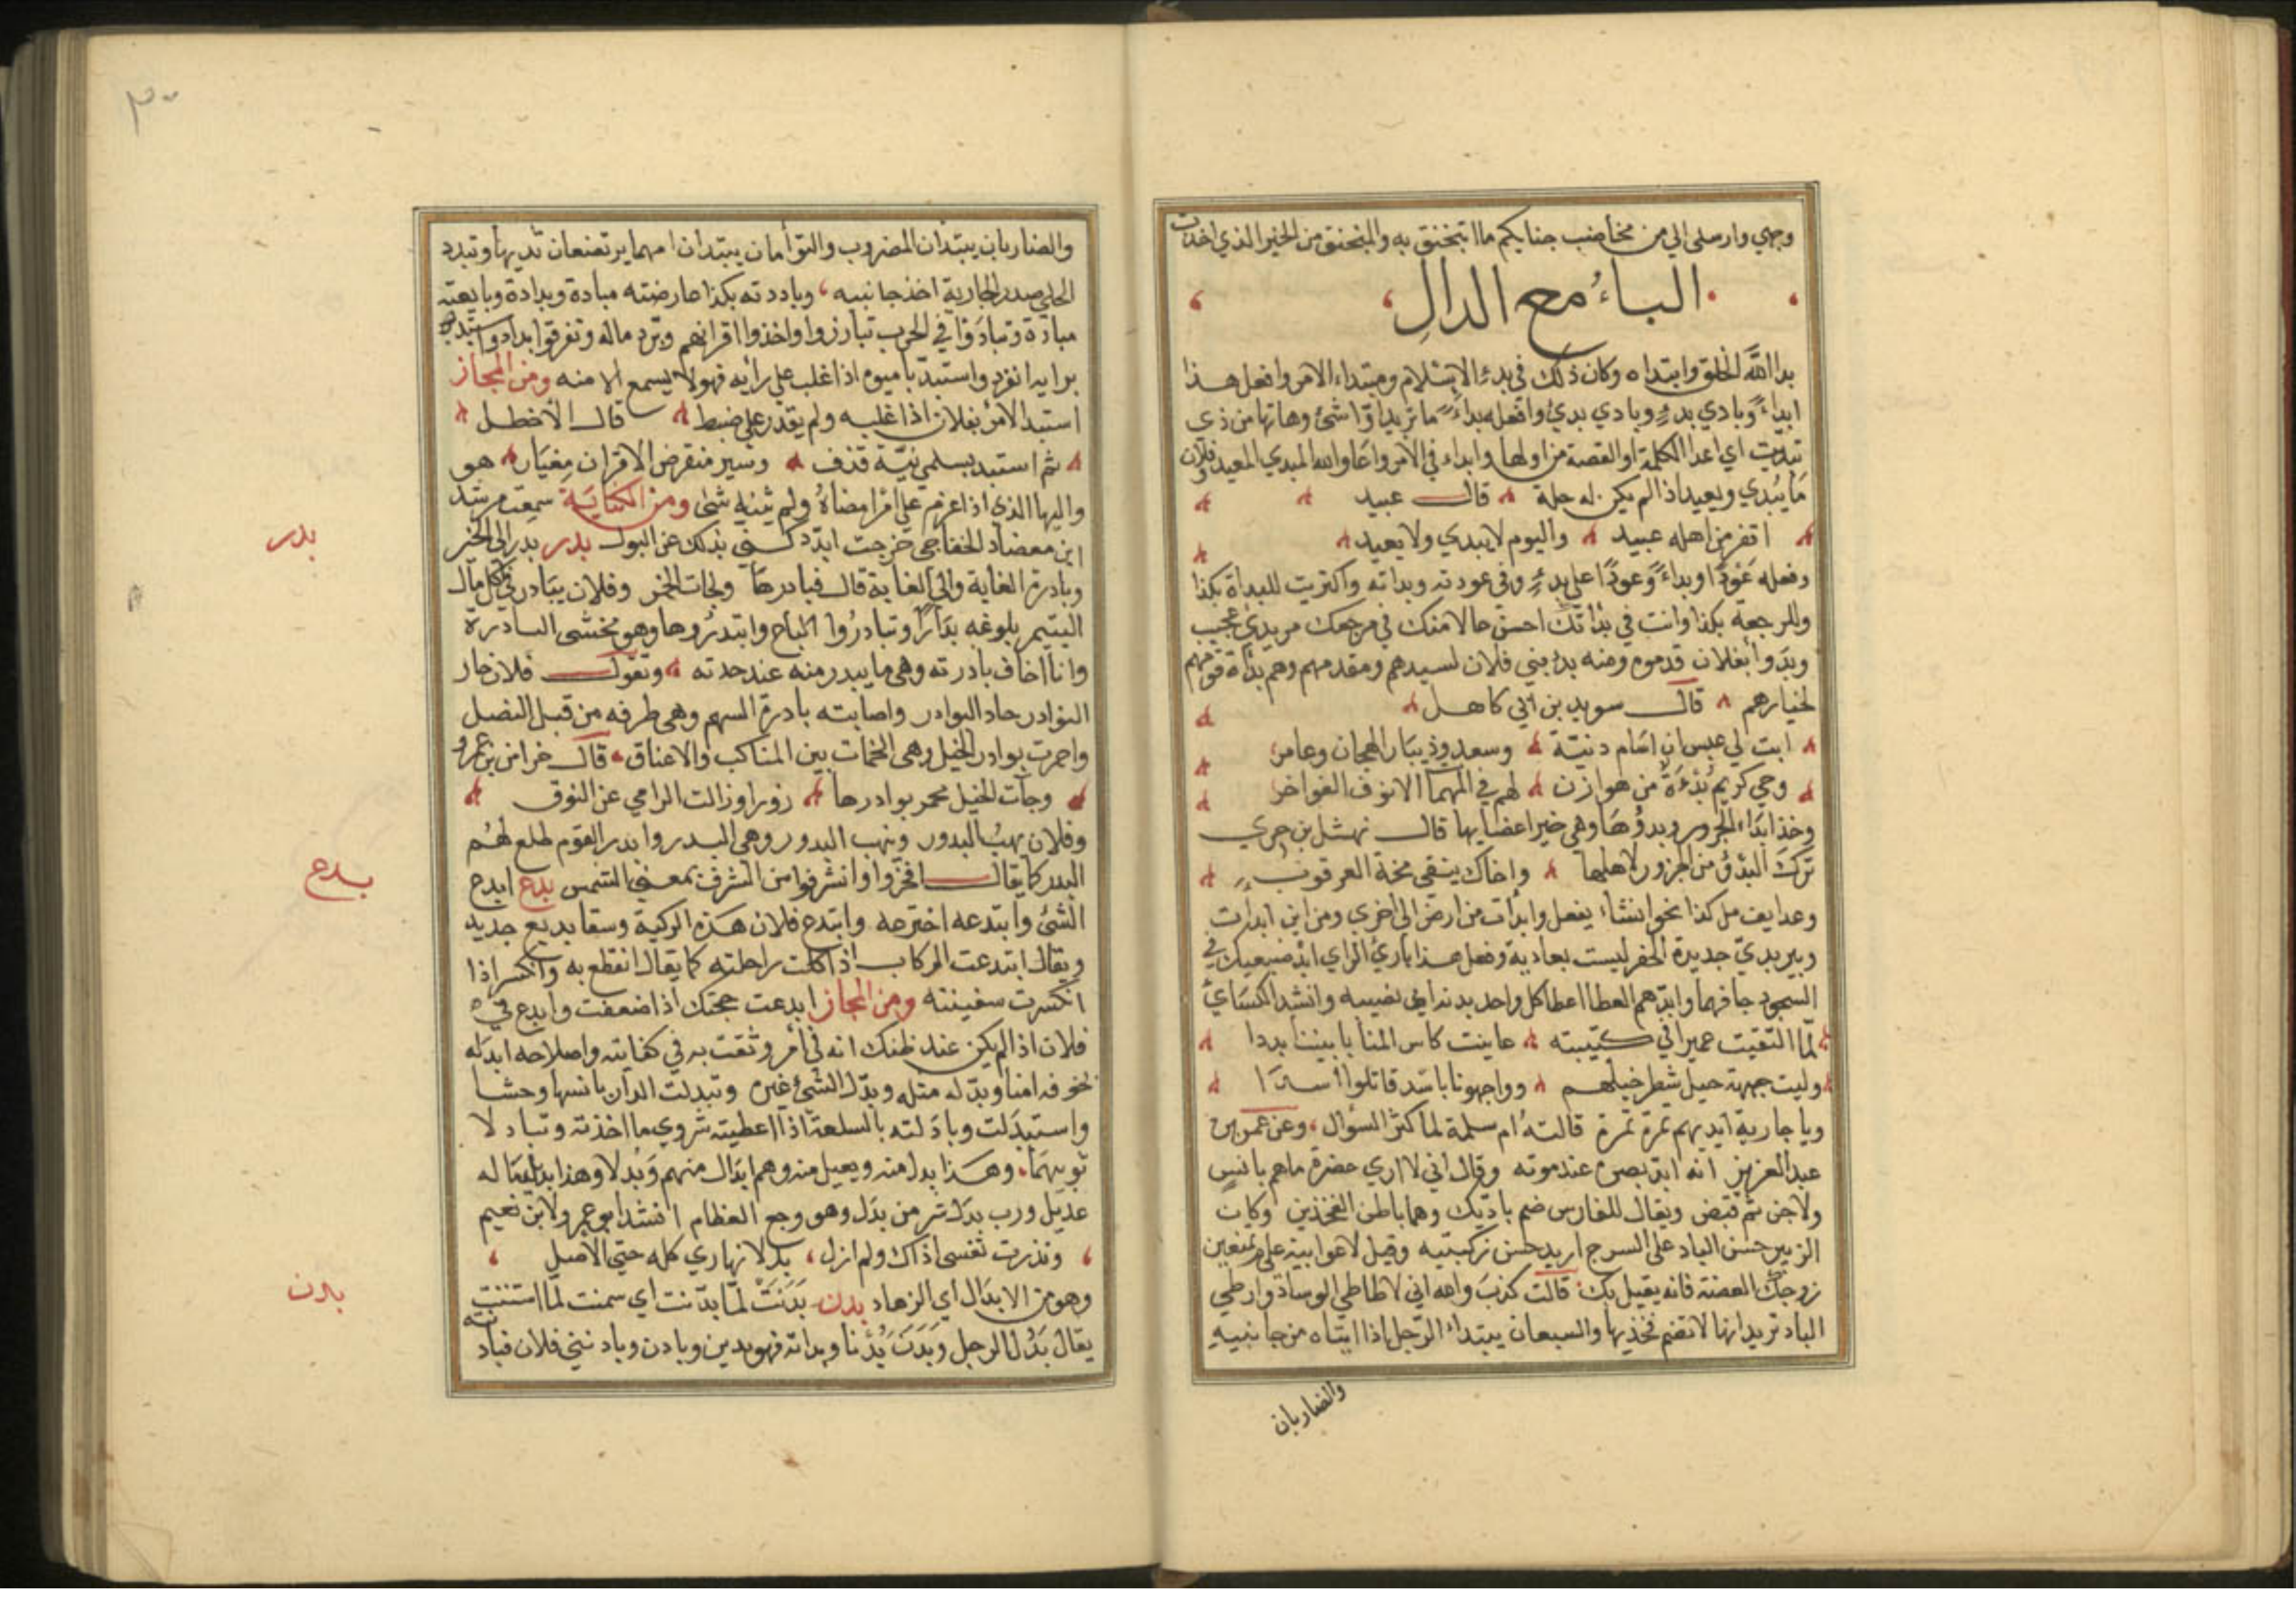 وجهي وارسلي الي من مخاضب جنابكم ما اتبخنق به والمبخنق من الخيل الذي اخذت
الباء مع الدال
بدا الله الخلق وابتداه وكان ذلك في بدء الاسلام ومبتداء الامر وافعل هذا
ابداءً وبادي بدءٍ وبادي بدئ وافعله بداءً ما تريد اوّل شئ وهاتها من ذي
تبدّيت اي اعد الكلمة او القصة من اولها وابداء في الامر واعاد والله المبدي المعيد وفلان
مَا يُبدي ويعيد اذا لم يكن له حيلة قال عبيد
اقفر من اهله عبيد واليوم لا يبدي ولا يعيد
وفعله عَودًا وبداءً وعودًا على بدءٍ وفي عودته وبداته واكتريت للبداة بكذا
وللرجعة بكذا وانت في بداتك احسن حالا منك في مرجعك من بدئ عجيب
وبدوا بفلان قدموه ومنه بدء بني فلان لسيدهم ومقدمهم وهم بداة قومهم
لخيارهم قال سويد بن ابي كاهل
ابت لي عبس ان اسام دنيّة وسعد وذبيان الهجان وعامر
وحي كريم بُدءَةٌ من هوازن لهم في الملمات الانوف الفواخر
وخذ ابداء الجزور وبدؤها وهي خير اعضايها قال نهشل بن حري
تركت البدؤ من الجزور لاهلها واخاك ينقي مخة العرقوب
وعدا يفعل كذا نحو انشاء يفعل وابدات من ارض الى اخري ومن اين ابدات
وبير بدئ جديدة الحفر ليست بعادية وفعل هذا باري الراي ابد ضبعيك في
السجود جافهما وابدّهم العطا اعطا كل واحد بدته اي نصيبه وانشد الكسائ
لمّا التقيت عميرا في كتيبته عاينت كاس المنايا بيننا بددا
وليت جبهة خيل شطر خيلهم وواجهونا باسد قاتلوا اسدَا
ويا جارية ابديهم تمرة تمرة قالته ام سلمة لما كثر السؤال، وعن عمر بن
عبد العزيز انه ابد بصره عند موته وقال اني لا اري حضرة ما هم بانس
ولا جن ثم قبض ويقال للفارس ضم باديك وهما باطن الفخذين وكان
الزبير حسن الباد على السرج اريد حسن ركبتيه وقيل لاعرابية علام تمنعين
زوجك القضة فانه يعتل بك، قالت كذب والله اني لاطاطي الوساد وارخي
الباد تريد انها لا تضم فخذيها والسبعان يبتدان الرجل اذا ايتاه من جانبيه
والضاربان
٣٠
والضاربان يبتدان المضروب والتوأمان يبتدان امهما يرتضعان ثديها وتبدد
الحلي صدر الجارية اخذ جانبيه، وباددته بكذا عارضته مبادة وبدادة وبايعته
مبادة وتبادّوا في الحرب تبارزوا واخذوا اقرانهم وبدّد ماله وتفرقوا ابداد واستبد
برايه انفرد واستبد باميره اذا غلب علي رأيه فهو لا يسمع الا منه ومن المجاز
استبد الامر بفلان اذا غلبه ولم يقدر علي ضبط قال الاخطل
ثم استبد بسلمي نيّة قذف وسير منقرض الاقران مغيار هو
واليها الذي اذا عزم علي امر امضاه ولم يثنه شئ ومن الكناية سمعت مرشد
ابن معضاد الخفاجي خرجت ابدد كني بذلك عن البول بدر بدر الى الخير
وبادرة الغاية والي الغاية قال فبادرها ولجات الخمر وفلان يبادر في اكل مال
اليتيم بلوغه بدَارًا وتبادرُوا الباح وابتدروها وهو مخشى البادرة
وانا اخاف بادرته وهي ما يبدر منه عند حدته وتقول فلان حار
النوادر حاد البوادر واصابته بادرة السهم وهي طرفه من قبل النصل
واحمرت بوادر الخيل وهي اللحمات بين المناكب والاعناق، قال خراش بن عمرو
وجات الخيل محمر بوادرها زورا وزالت الرامي عن الفوق
وفلان يهبُ البدور وينهب البدور وهي البدر وابدر القوم طلع لهم
البدر كما يقال افجروا واشرقوا من الشرق بمعني الشمس بدع ابدع
الشئ وابتدعه اخترعه وابتدع فلان هذه الركية وسقا بديع جديد
ويقال ابتدعت الركاب اذا كلت راحلته كما يقال انقطع به وانكسر اذا
انكسرت سفينته ومن المجاز ابدعت حجتك اذا ضعفت وابدع في
فلان اذا لم يكن عند ظنك انه في امر وثقت به في كفايته واصلاحه ابدله
بخوفه امنا وبدّله مثله وبدّل الشئ غيره وتبدلت الدار بانسها وحشا
واستبدلت وبادَلته بالسلعة اذا اعطيته شروي ما اخذته وتبادلا
ثوبيهما، وهذا بدل منه وبديل منه وهم ابدال منهم وبُدلاو هذا بديل ماله
عديل ورب بدل شر من بدَل وهو وجع العظام انشد ابو عمرو لابن نعيم
، ونذرت نفسي اذاك ولم ازل، بدلا نهاري كله حتي الاصيل ،
وهو من الابدال اي الزهاد بدن بَدَنَتْ لمّا بدّنت اي سمنت لما اسنت
يقال بَدُن الرجل وبَدَن بُدْنا وبدانة فهو بدين وبادن وبادنني فلان فباد
نته
بدر
بدع
بدن